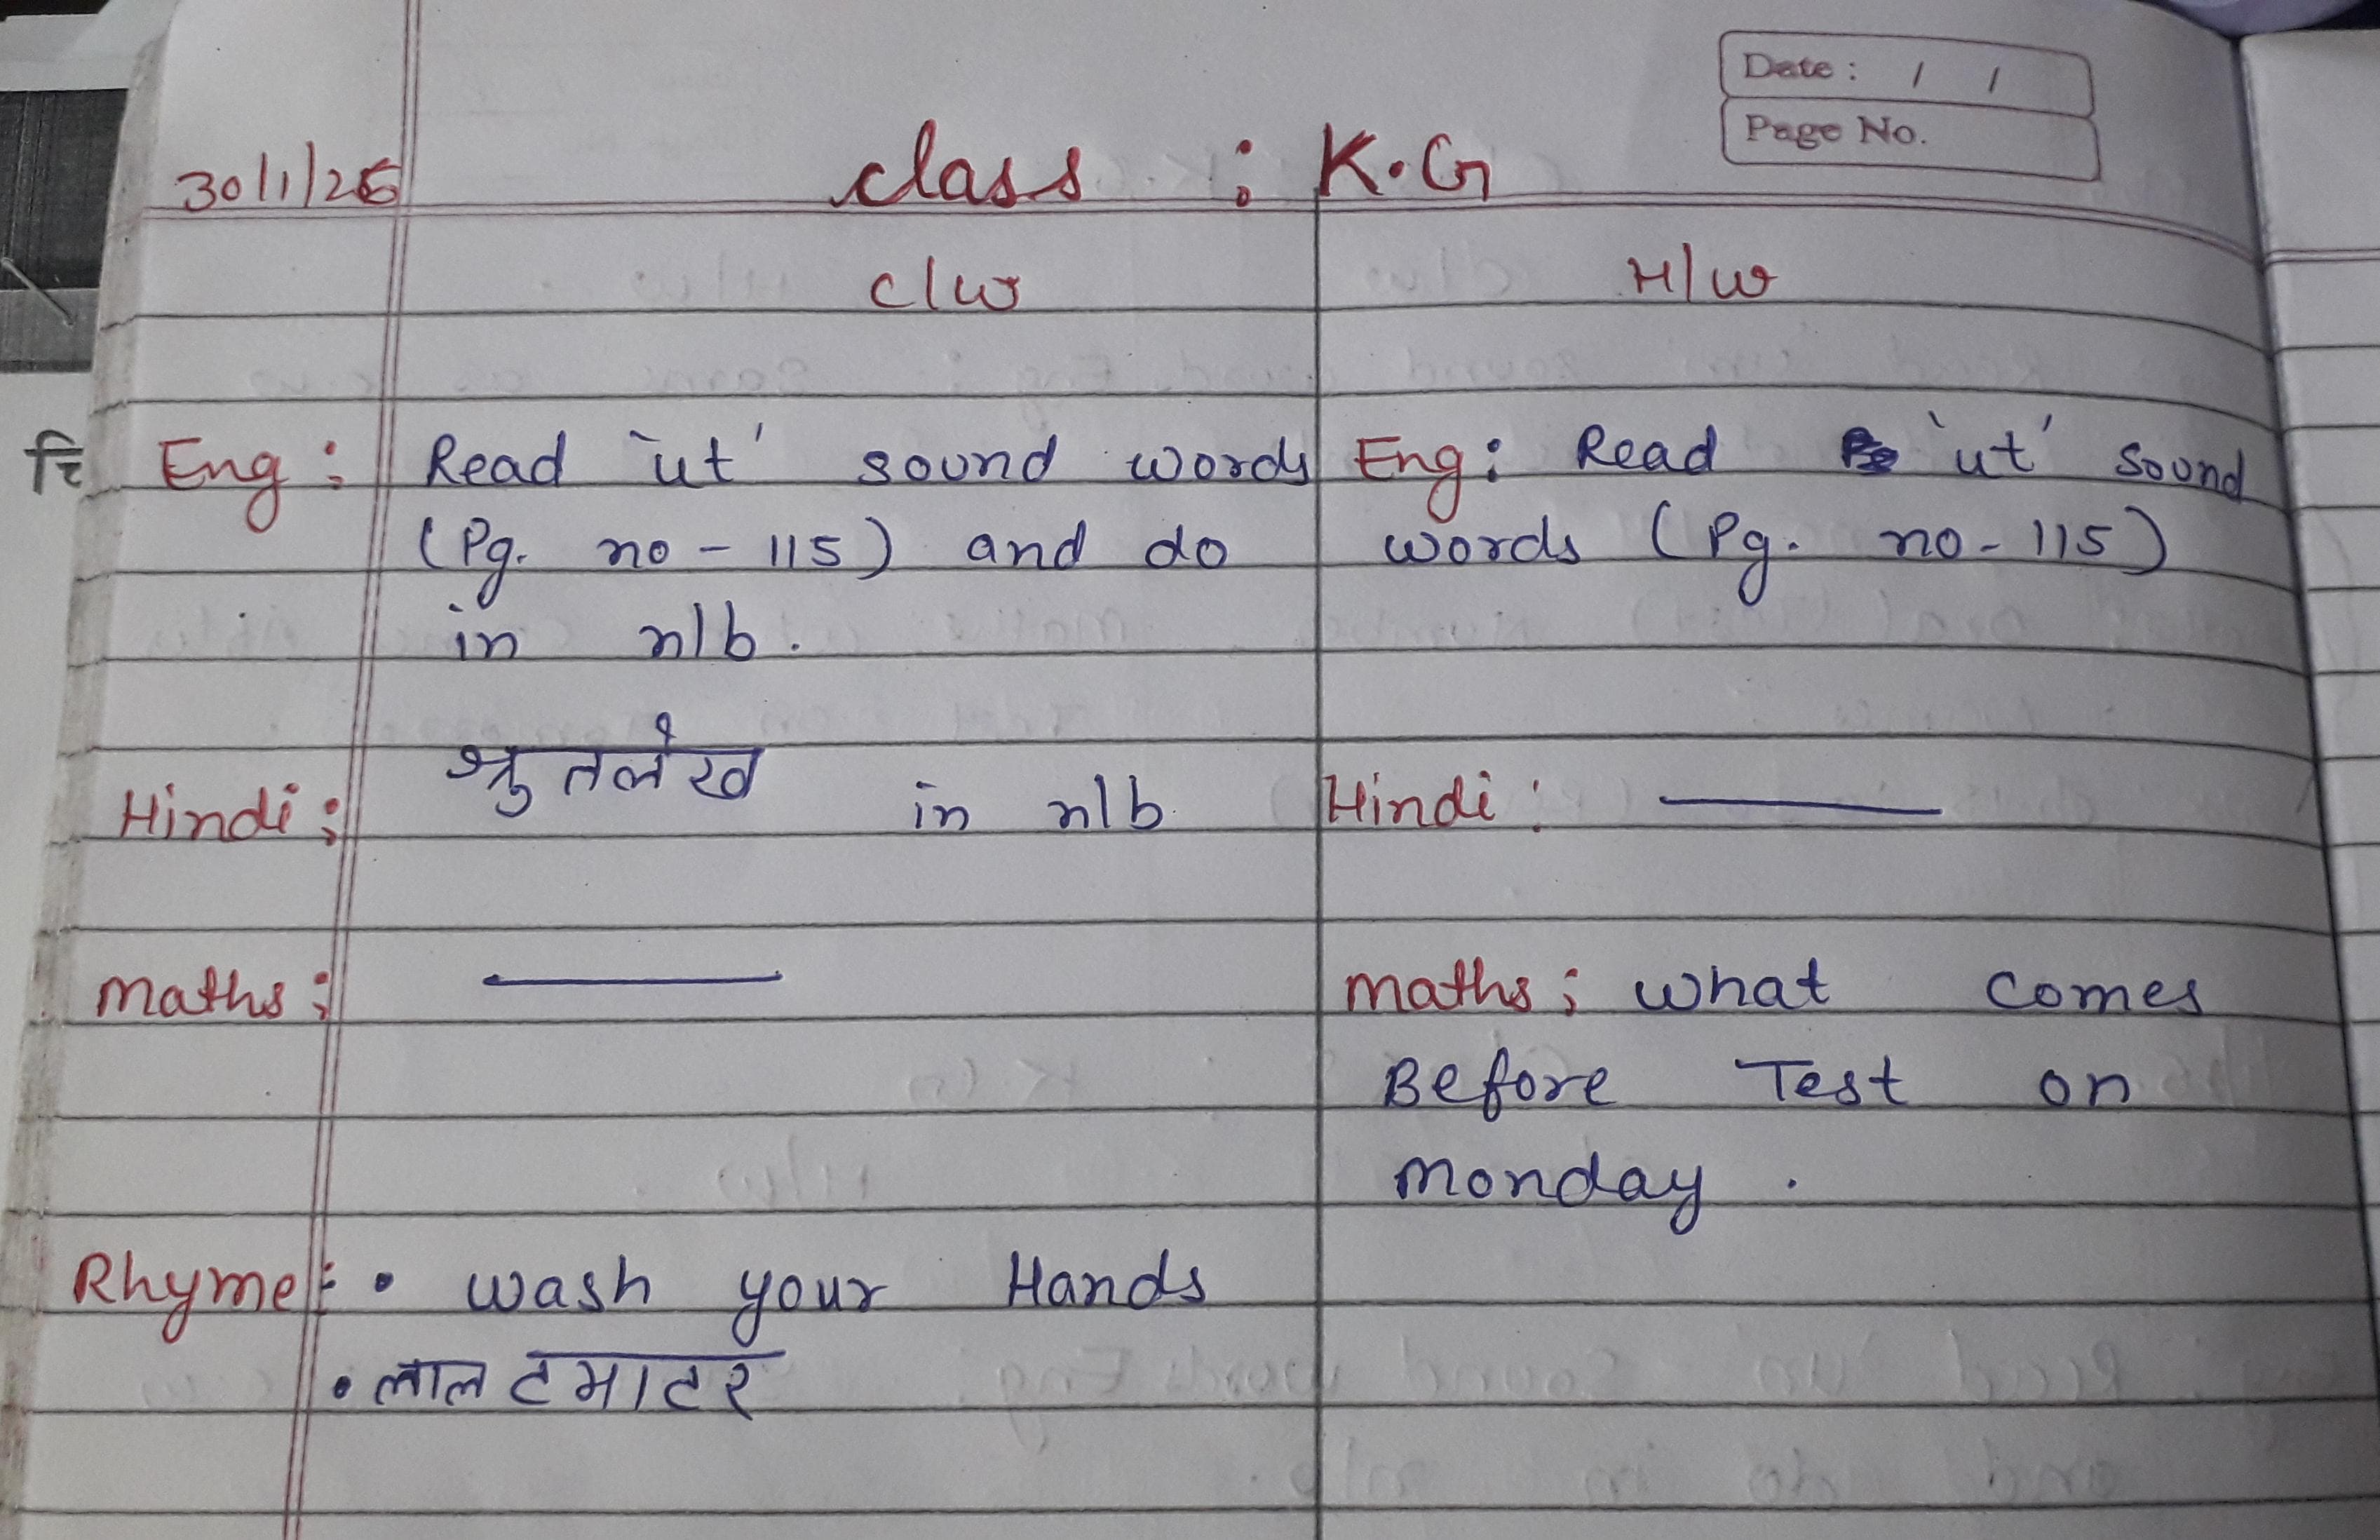 Date : / /
Page No.
30/1/26 class : K.G
C/W H/W
Eng : Read 'ut' sound words
(Pg. no - 115) and do
in n/b.
Eng : Read 'ut' sound
words (Pg. no - 115)
Hindi : श्रुतलेख in n/b
Hindi :
Maths :
Maths : What comes
Before Test on
Monday .
Rhyme : • Wash your Hands
• लाल टमाटर